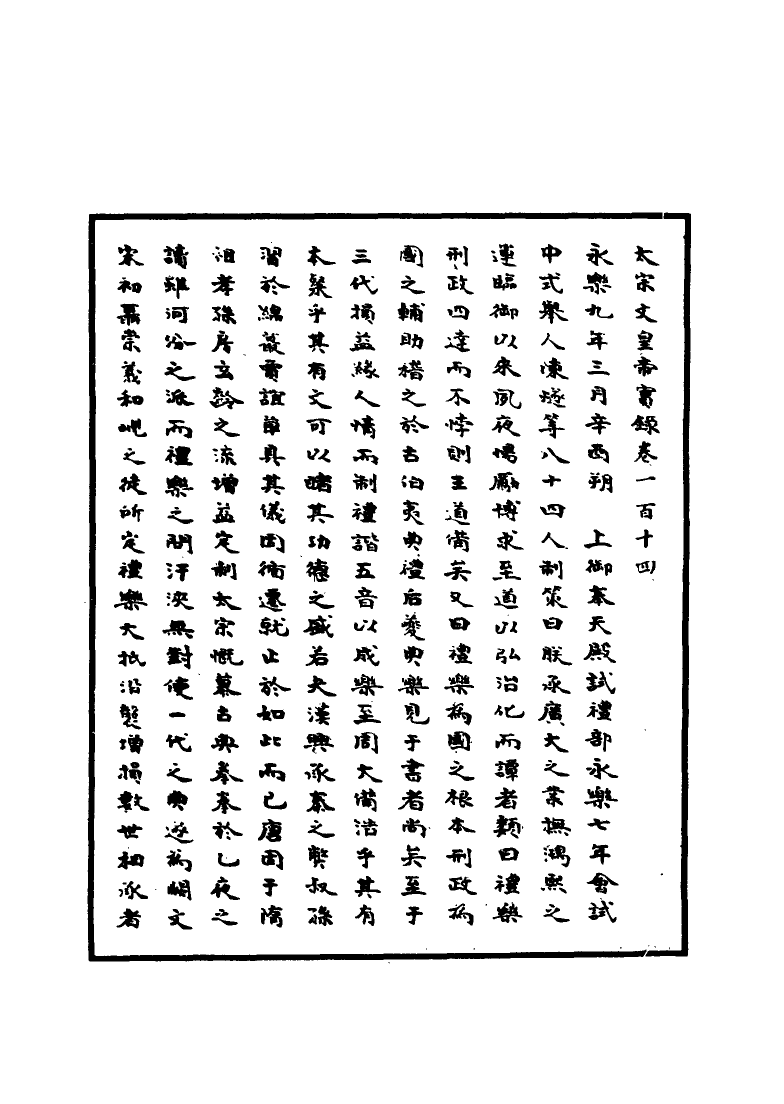 太宗文皇帝實錄卷一百十四
永樂九年三月辛酉朔　上御奉天殿試禮部永樂七年會試
中式舉人陳燧等八十四人制策曰朕承廣大之業撫鴻熙之
運臨御以來夙夜惕勵博求至道以弘治化而譚者類曰禮樂
刑政四達而不悖則王道備矣又曰禮樂為國之根本刑政為
國之輔助稽之於古伯夷典禮后夔典樂見于書者尚矣至于
三代損益緣人情而制禮諧五音以成樂至周大備浩乎其有
本粲乎其有文可以睹其功德之盛若夫漢興承秦之弊叔孫
習於綿蕞賈誼草具其儀因循遷就止於如此而已唐因于隋
祖孝孫房玄齡之流增益定制太宗慨慕古典拳拳於乙夜之
讀雖河汾之派而禮樂之問汗浹無對使一代之典遂為闕文
宋初聶崇義和峴之徒所定禮樂大抵沿襲增損數世相承者